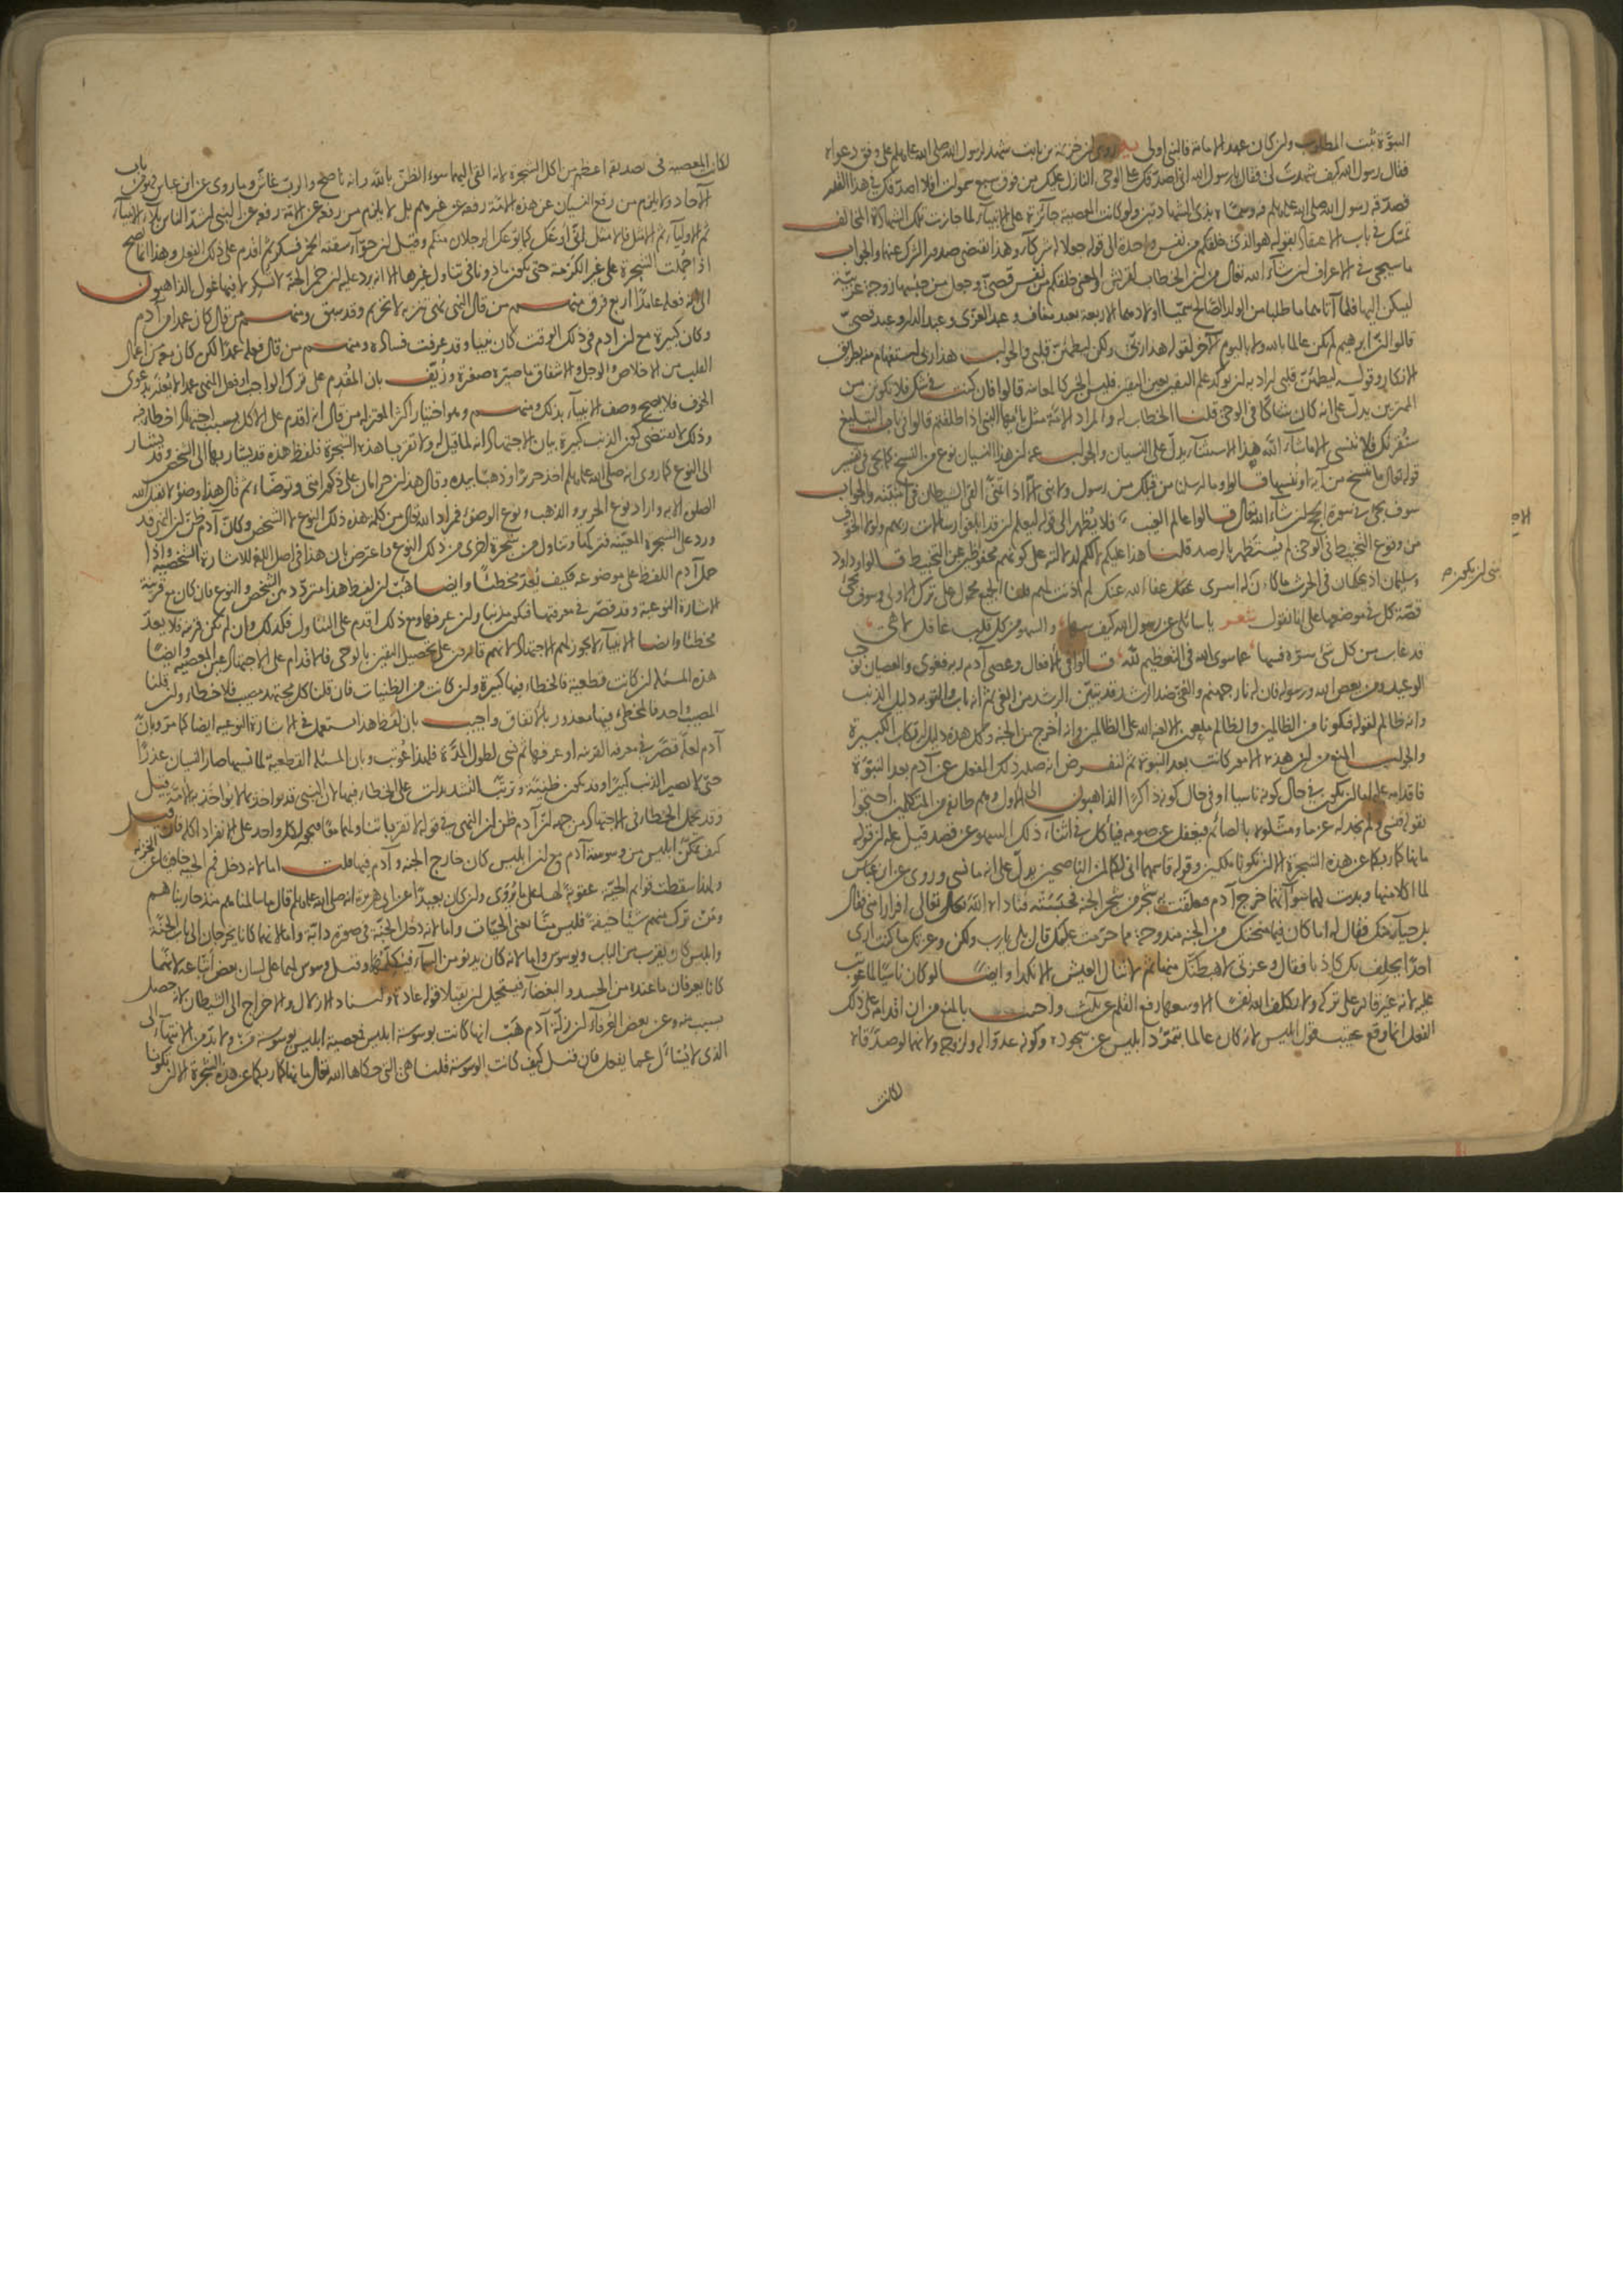 النبوة ثبت المطلوب ولن كان عهد الامامة فالنبي اولى يد روى لن خزيمة بن ثابت شهد لرسول الله صلى الله عليه وسلم على وفق دعواه
فقال رسول الله كيف شهدت لى فقال يا رسول الله انى اصدقك على الوحى النازل عليك من فوق سبع سموات افلا اصدقك فى هذا القدر
فصدقه رسول الله صلى الله عليه وسلم فيه وسماه بذى الشهادتين ولو كانت المعصية جائزة على الانبياء لما جازت تلك الشهادة المخالف
تمسك فى باب الاعتقاد بقوله هو الذى خلقكم من نفس واحدة الى قوله جعلا له شركاء وهذا يقتضى صدور الشرك عنهما والجواب
ما سيجى فى الاعراف لن شاء الله تعالى من لن الخطاب لقريش والمعنى خلقكم من نفس قصى وجعل من جنسها زوجة عربية
ليسكن اليها فلما آتاهما ما طلبا من الولد الصالح سميا اولادهما الاربعة بعبد مناف وعبد العزى وعبد الدار وعبد قصى
قالوا لن ابرهيم لم يكن عالما بالله ولا باليوم الآخر لقوله هذا ربى ولكن ليطمئن قلبى والجواب هذا ربى استفهام بطريق
الانكار وقوله ليطمئن قلبى اراد به لن يؤكد علم اليقين بعين اليقين فليس الخبر كالمعاينة قالوا فان كنت فى شك فلا تكونن من
الممترين يدل على انه كان شاكا فى الوحى قلنا الخطاب له والمراد الامة مثل يا ايها النبى اذا طلقتم قالوا فى باب التبليغ
سنقرئك فلا تنسى الا ما شاء الله هذا الاستثناء يدل على النسيان والجواب عنه لن هذا النسيان نوع من النسخ كما يجى فى تفسير
قوله تعالى ما ننسخ من آية او ننسها قالوا وما ارسلنا من قبلك من رسول ولا نبى الا اذا تمنى القى الشيطان فى امنيته والجواب
سوف يجى فى سورة الحج لن شاء الله تعالى قالوا عالم الغيب فلا يظهر الى قوله ليعلم لن قد ابلغوا رسالات ربهم ولولا الخوف
من وقوع التخبيط فى الوحى لم يستظهر بالرصد قلنا هذا عليكم لا لكم لدلالته على كونهم محفوظين عن التخبيط قالوا وداود
وسليمان اذ يحكمان فى الحرث ما كان له اسرى عفا الله عنك لم اذنت لهم قلنا الجميع محمول على ترك الاولى وسوف يجى
قصة كل فى موضعها على انا نقول شعر يا سائلى عن رسول الله كيف سها والسهو من كل قلب غافل لاهى
قد غاب عن كل شى سره فسها عما سوى الله فى التعظيم لله قالوا فى الافعال وعصى آدم ربه فغوى والعصيان يوجب
الوعيد ومن يعص الله ورسوله فان له نار جهنم والغى ضد الرشد قد تبين الرشد من الغى ثم انه تاب والتوبة دليل الذنب
وانه ظالم لقوله فتكونا من الظالمين والظالم ملعون الا لعنة الله على الظالمين وانه اخرج من الجنة وكل هذه دليل ارتكاب الكبيرة
والجواب المنع من لن هذه الامور كانت بعد النبوة ثم لنفرض انه صدر ذلك الفعل عن آدم بعد النبوة
فاقدامه عليه اما لن يكون فى حال كونه ناسيا او فى حال كونه ذاكرا الذاهبون الى الاول وهم طائفة من المتكلمين احتجوا
بقوله فنسى ولم نجد له عزما ومثلوه بالصائم فيغفل عن صومه فيأكل فى اثناء ذلك السهو عن قصد قيل عليه لن قوله
ما نهاكما ربكما عن هذه الشجرة الا لن تكونا ملكين وقوله قاسمهما انى لكما لمن الناصحين يدل على انه ما نسى وروى عن ابن عباس
لما اكلا منها وبدت لهما سوآتهما خرج آدم فتعلقت به شجرة من شجر الجنة فحبسته فناداه الله تعالى افرارا منى فقال
بل حياء منك فقال له اما كان فيما منحتك من الجنة مندوحة مما حرمت عليك قال بلى يا رب ولكن وعزتك ما كنت ارى
احدا يحلف بك كاذبا فقال وعزتى لاهبطنك منها ثم لا تنال العيش الا نكدا وايضا لو كان ناسيا لما عوتب
عليه لانه غير قادر على تركه ولا يكلف الله نفسا الا وسعها رفع القلم عن ثلث واجيب بالمنع من ان اقدامه على ذلك
الفعل انما وقع عقيب قول ابليس لانه كان عالما بتمرد ابليس عن سجوده وكونه عدوا له ولزوجه ولانهما لو صدقاه
لكانت
شى لن يكون ص
لكانت المعصية فى تصديقه اعظم من اكل الشجرة لانه القى اليهما سوء الظن بالله وانه ناصح والرب غاش وما روى عن ابن عباس فمن باب
الآحاد ولا يلزم من رفع النسيان عن هذه الامة رفعه عن غيرهم بل لا يلزم من رفعه عن الامة رفعه عن النبى اشد الناس بلاء الانبياء
ثم الاولياء ثم الامثل فالامثل انى اوعك كما يوعك الرجلان منكم وقيل لن حواء سقته الخمر فسكر ثم اقدم على ذلك الفعل وهذا انما يصح
اذا حملت الشجرة على غير الكرمة حتى يكون ماذونا فى تناول غيرها الا انه يرد عليه لن خمر الجنة لا تسكر لا فيها غول الذاهبون
الى انه فعله عامدا اربع فرق منهم من قال النهى نهى تنزيه لا تحريم وقد سبق ومنهم من قال كان عمدا من آدم
وكان كبيرة مع لن آدم فى ذلك الوقت كان نبيا وقد عرفت فساده ومنهم من قال فعله عمدا لكن كان معه من اعمال
القلب من الاخلاص والوجل والاشفاق ما صيره صغيرة وزيف بان المقدم على ترك الواجب او فعل المنهى عمدا لا يعذر بدعوى
الخوف فلا يصح وصف الانبياء بذلك ومنهم وهو اختيار اكثر المعتزلة من قال انه اقدم على الاكل بسبب اجتهاد اخطأ فيه
وذلك لا يقتضى كون الذنب كبيرة بيان الاجتهاد انه لما قيل له ولا تقربا هذه الشجرة فلفظ هذه قد يشار بها الى الشخص وقد يشار
الى النوع كما روى انه صلى الله عليه وسلم اخذ حريرا وذهبا بيده وقال هذان حرامان على ذكور امتى وتوضأ ثم قال هذا وضوء لا يقبل الله
الصلوة الا به واراد نوع الحرير والذهب ونوع الوضوء فمراد الله تعالى من كلمة هذه ذلك النوع لا الشخص وكان آدم ظن لن النهى قد
ورد على الشجرة المعينة فتركها وتناول من شجرة اخرى من ذلك النوع واعترض بان هذا فى اصل اللغة للاشارة الشخصية واذا
حمل آدم اللفظ على موضوعه فكيف يعد مخطئا وايضا هب لن لفظ هذا متردد بين الشخص والنوع فان كان مع قرينة
الاشارة النوعية وقد قصر فى معرفتها فيكون مذنبا ولن عرفها ومع ذلك اقدم على التناول فكذلك وان لم تكن قرينة فلا يعد
مخطئا وايضا الانبياء لا يجوز لهم الاجتهاد لانهم قادرون على تحصيل اليقين بالوحى فالاقدام على الاجتهاد عين المعصية وايضا
هذه المسئلة لن كانت قطعية فالخطاء فيها كبيرة ولن كانت من الظنيات فان قلنا كل مجتهد مصيب فلا خطاء ولن قلنا
المصيب واحد فالمخطئ فيها معذور بالاتفاق واجيب بان لفظ هذا يستعمل فى الاشارة النوعية ايضا كما مر وبان
آدم لعله قصر فى معرفة القرينة او عرفها ثم نسى لطول المدة فلهذا عوتب وبان المسئلة القطعية لما نسيها صار النسيان عذرا
حتى لا يصير الذنب كبيرا وقد يكون ظنية وترتب التشديدات على الخطاء فيها لان النبى قد يؤاخذ بما لا يؤاخذ به الامة وقيل
وقد يحمل الخطاء فى الاجتهاد من جهة لن آدم ظن لن النهى فى قوله لا تقربا تناولهما معا فيجوز لكل واحد على الانفراد اكله فان قيل
كيف تمكن ابليس من وسوسة آدم مع لن ابليس كان خارج الجنة وآدم فيها قلت اما لانه دخل فم الحية خافيا عن الخزنة
ولهذا سقطت قوائم الحية عقوبة لها على ما يروى ولن كان بعيدا عن ابى هريرة انه صلى الله عليه وسلم قال ما سالمناهم منذ حاربناهم
ومن ترك منهم شيئا خيفة فليس منا يعنى الحيات واما لانه دخل الجنة فى صورة دابة واما لانهما كانا يخرجان الى باب الجنة
وابليس كان يقرب من الباب ويوسوس واما لانه كان يدنو من السماء فيكلمهما وقيل وسوس لهما على لسان بعض اتباعه لانهما
كانا يعرفان ما عنده من الحسد والبغضاء فيستحيل لن يقبلا قوله عادة ولسناد الازلال والاخراج الى الشيطان لانه حصل
بسبب منه وعن بعض العرفاء لن زلة آدم هب انها كانت بوسوسة ابليس فمعصية ابليس بوسوسة من ولا بد من الانتهاء الى
الذى لا يسأل عما يفعل فان قيل كيف كانت الوسوسة قلنا هى التى حكاها الله تعالى ما نهاكما ربكما عن هذه الشجرة الا لن تكونا